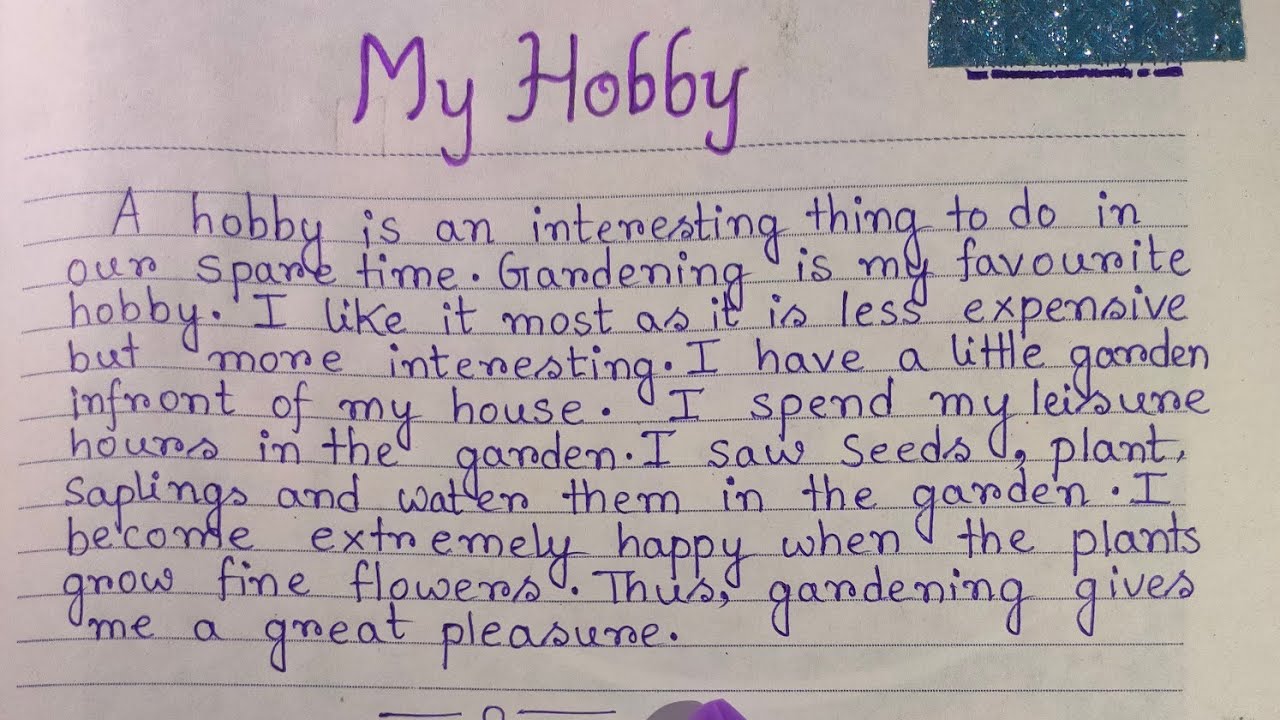 My Hobby
A hobby is an interesting thing to do in
our spare time. Gardening is my favourite
hobby. I like it most as it is less expensive
but more interesting. I have a little garden
infront of my house. I spend my leisure
hours in the garden. I saw seeds, plant,
saplings and water them in the garden. I
become extremely happy when the plants
grow fine flowers. Thus, gardening gives
me a great pleasure.